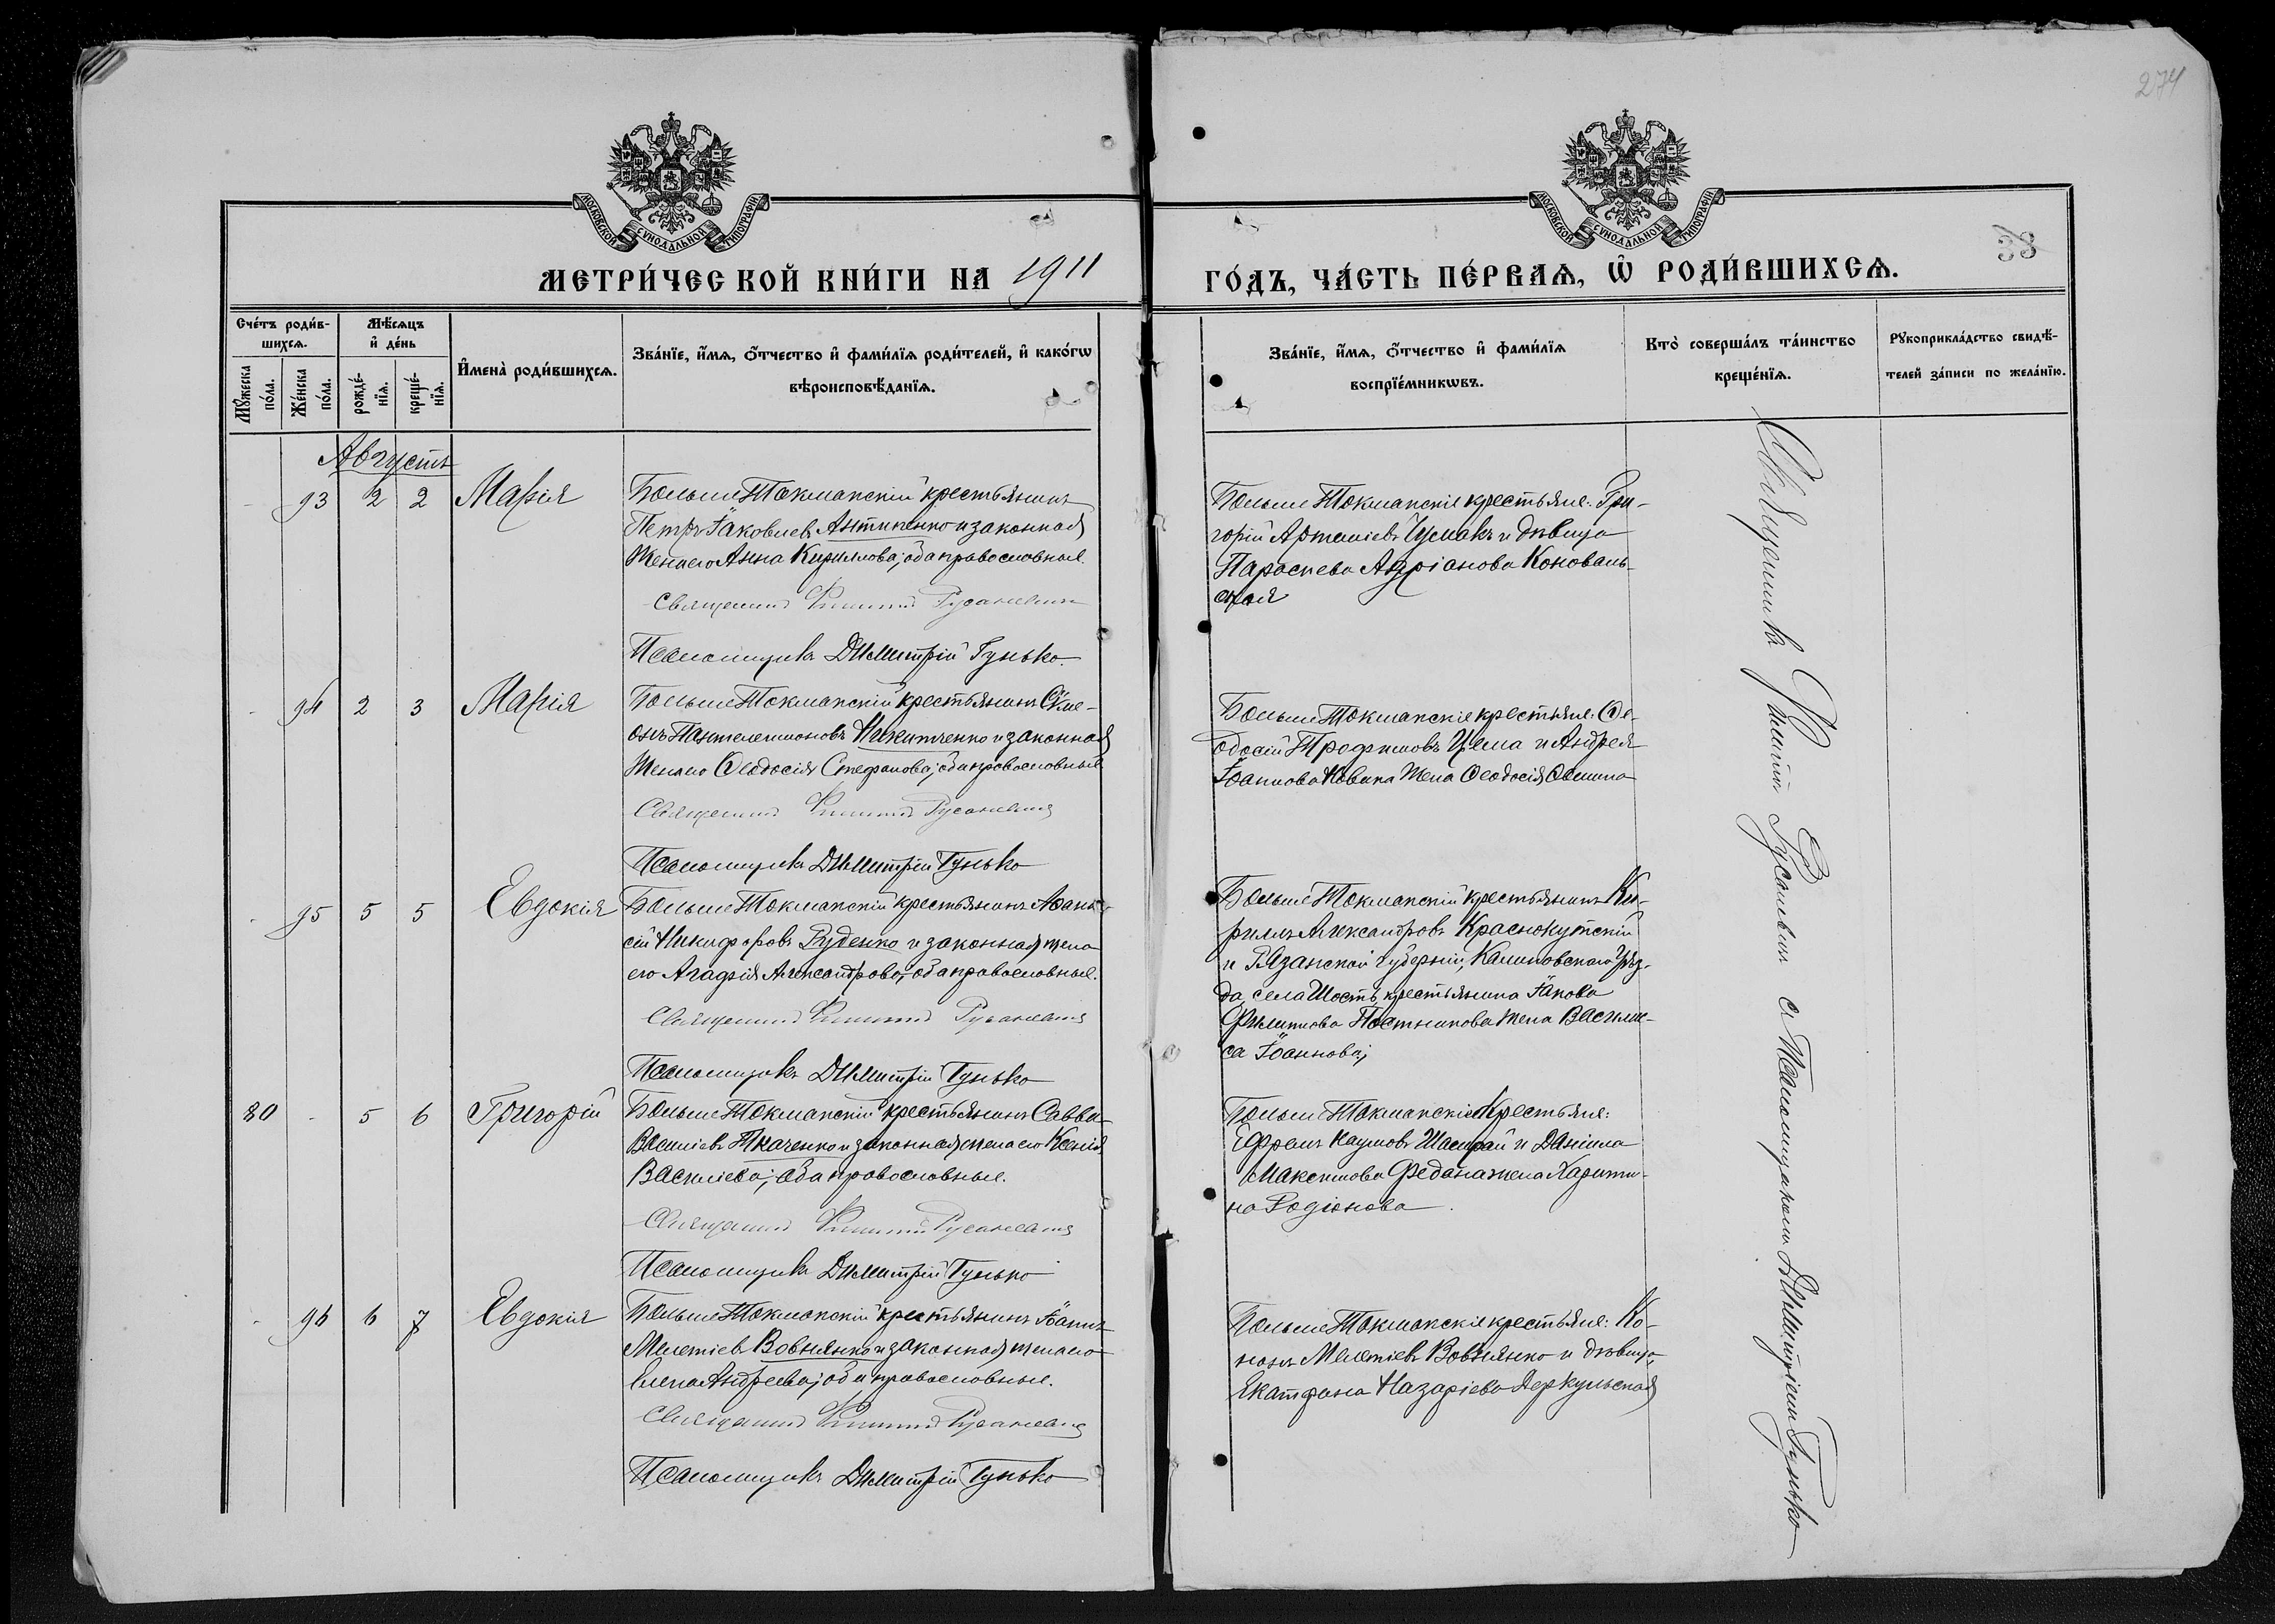 274
МОСКОВСКОЙ СѴНОДАЛЬНОЙ ТИПОГРАФІИ
МОСКОВСКОЙ СѴНОДАЛЬНОЙ ТИПОГРАФІИ
33
МЕТРИ́ЧЕСКОЙ КНИ́ГИ НА 1911
ГО́ДЪ, ЧА́СТЬ ПЕ́РВАѦ, Ѡ҆ РОДИ́ВШИХСѦ.
Сче́тъ роди́в-
шихсѧ.
Мѣ́сѧцъ
и҆ де́нь
Мꙋ́жеска
по́ла.
Же́нска
по́ла.
рожде́-
нїѧ.
креще́-
нїѧ.
И҆мена̀ роди́вшихсѧ.
Зва́нїе, и҆́мѧ, ѻ҆́тчество и҆ фами́лїѧ роди́телей, и҆ како́гѡ
вѣроисповѣ́данїѧ.
Зва́нїе, и҆́мѧ, ѻ҆́тчество и҆ фами́лїѧ
воспрїе́мникѡвъ.
Кто̀ соверша́лъ та́инство
креще́нїѧ.
Рꙋкоприкла́дство свидѣ́-
телей за́писи по жела́нїю.
Августъ
- 93 2 2 Марія
Больше Токмакскій крестьянинъ
Петръ Іаковлевъ Антипенко и законная
жена его Анна Кириллова; оба православные.
Священникъ Филиппъ Русаневичъ
Псаломщикъ Димитрій Гунько
Больше Токмакскіе крестьяне: Гри-
горій Артеміевъ Чумакъ и дѣвица
Параскева Адріанова Коноваль-
ская
- 94 2 3 Марія
Больше Токмакскій крестьянинъ Сѵме-
онъ Пантелеимоновъ Никитченко и законная
жена его Ѳеодосія Стефанова; оба православные
Священникъ Филиппъ Русаневичъ
Псаломщикъ Димитрій Гунько
Больше Токмакскіе крестьяне: Ѳе-
одосій Трофимовъ Цема и Андрея
Іоаннова Новика жена Ѳеодосія Ѳомина
- 95 5 5 Евдокія
Больше Токмакскій крестьянинъ Аѳана-
сій Никифоровъ Руденко и законная жена
его Агафія Александрова; оба православные.
Священникъ Филиппъ Русаневичъ
Псаломщикъ Димитрій Гунько
Больше Токмакскій крестьянинъ Ки-
риллъ Александровъ Краснокутскій
и Рязанской губерніи, Касимовскаго уѣз-
да, села крестьянина Іакова
Филиппова Постникова жена Васили-
са Іоаннова;
80 - 5 6 Григорій
Больше Токмакскій крестьянинъ Савва
Василіевъ Ткаченко и законная жена его Ксенія
Василіева; оба православные.
Священникъ Филиппъ Русаневичъ
Псаломщикъ Димитрій Гунько
Больше Токмакскіе крестьяне:
Ефремъ Наумовъ Шамрай и Даніила
Максимова жена Харити-
на Родіонова.
- 96 6 7 Евдокія
Больше Токмакскій крестьянинъ Іоаннъ
Мелетіевъ Вовнянко и законная жена его
Елена Андреева; оба православные.
Священникъ Филиппъ Русаневичъ
Псаломщикъ Димитрій Гунько
Больше Токмакскіе крестьяне: Ко-
нонъ Мелетіевъ Вовнянко и дѣвица
Екатерина Назаріева Деркульская
Священникъ Филиппъ Русаневичъ съ Псаломщикомъ Димитріемъ Гунько